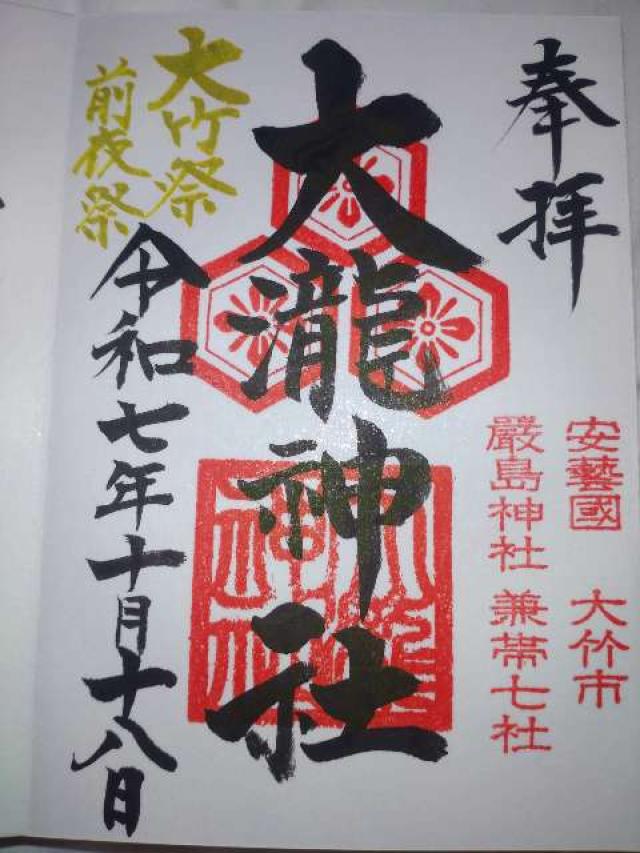 奉拝
安藝國 大竹市
嚴島神社 兼帯七社
大瀧神社
大竹祭
前夜祭
令和七年十月十八日